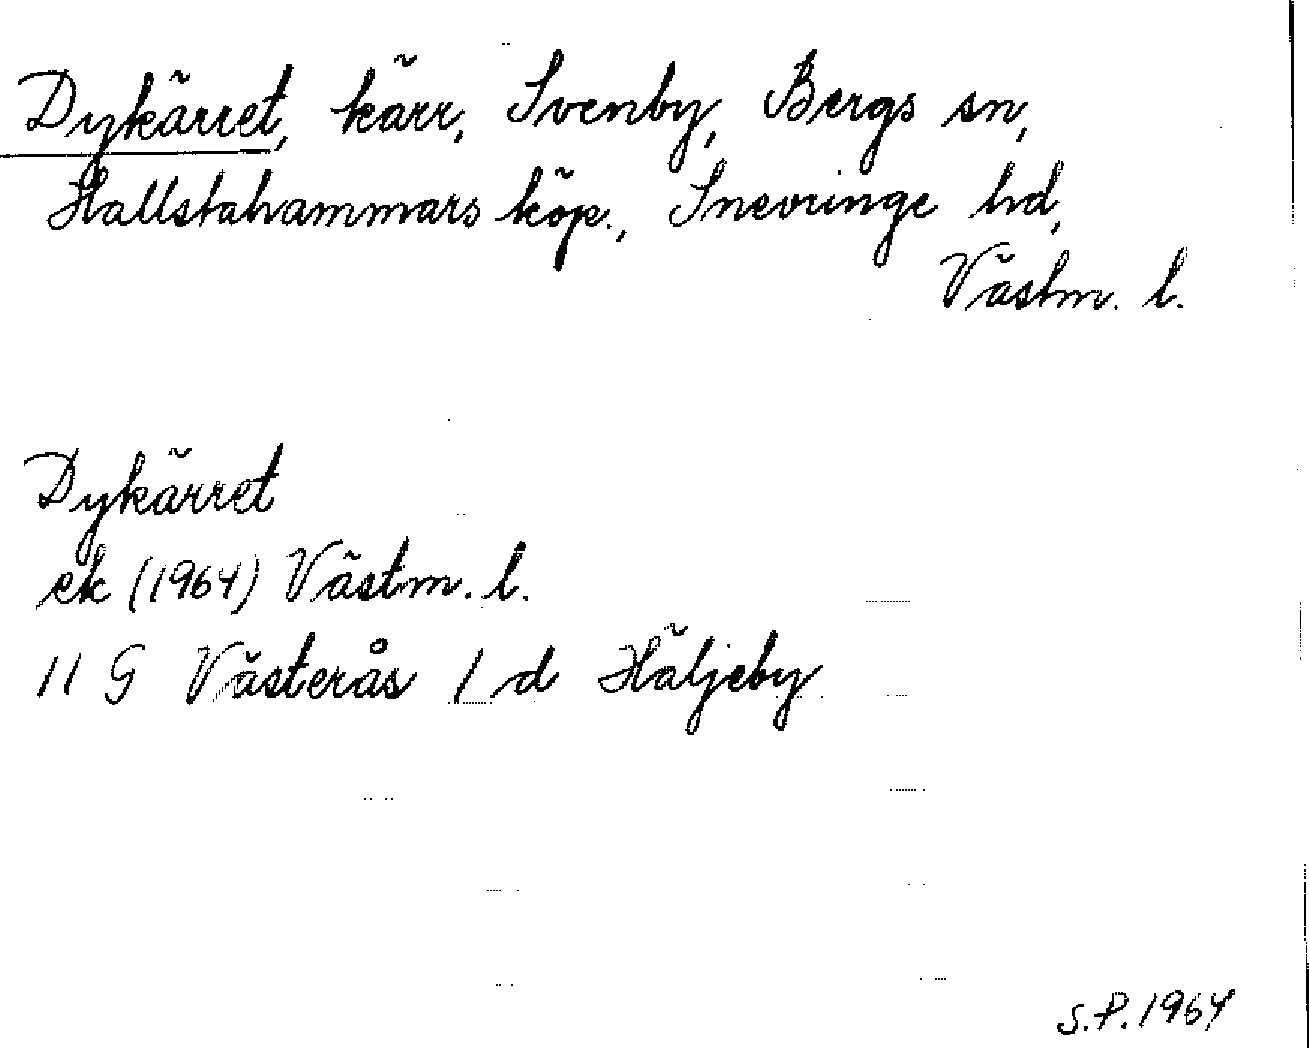 Dykärret, kärr, Svenby, Bergs sn,
Hallstahammars köp., Snevringe hd,
Västm. l.
Dykärret
ek (1964) Västm. l.
11 G Västerås 1 d Häljeby
S.P. 1964